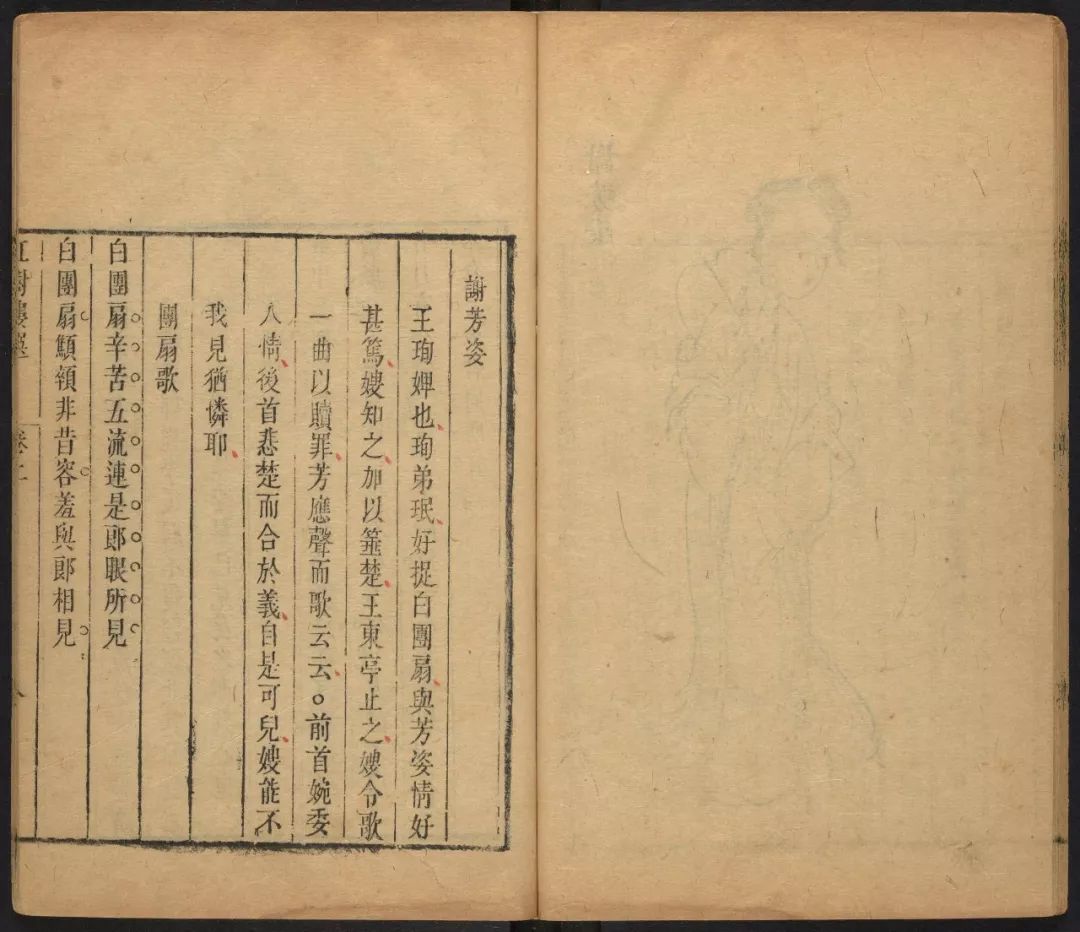 謝芳姿
王珣婢也珣弟珉好捉白團扇與芳姿情好
甚篤嫂知之加以箠楚王東亭止之嫂令歌
一曲以贖罪芳應聲而歌云云○前首婉委
人情後首悲楚而合於義自是可兒嫂能不
我見猶憐耶
團扇歌
白團扇辛苦五流連是郎眼所見
白團扇顦顇非昔容羞與郎相見
紅樹樓選